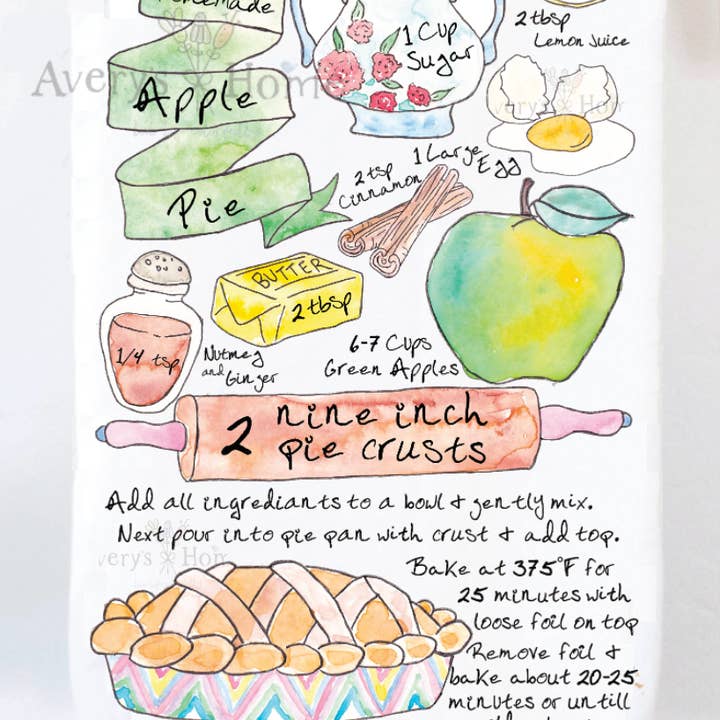 Homemade
Apple
Pie
Avery's Home
1 Cup
Sugar
2 tbsp
Lemon Juice
1 Large
Egg
2 tsp
Cinnamon
BUTTER
2 tbsp
1/4 tsp
Nutmeg
and Ginger
6-7 Cups
Green Apples
2 nine inch
pie crusts
Add all ingrediants to a bowl & gently mix.
Next pour into pie pan with crust & add top.
Bake at 375°F for
25 minutes with
loose foil on top
Remove foil &
bake about 20-25
minutes or untill